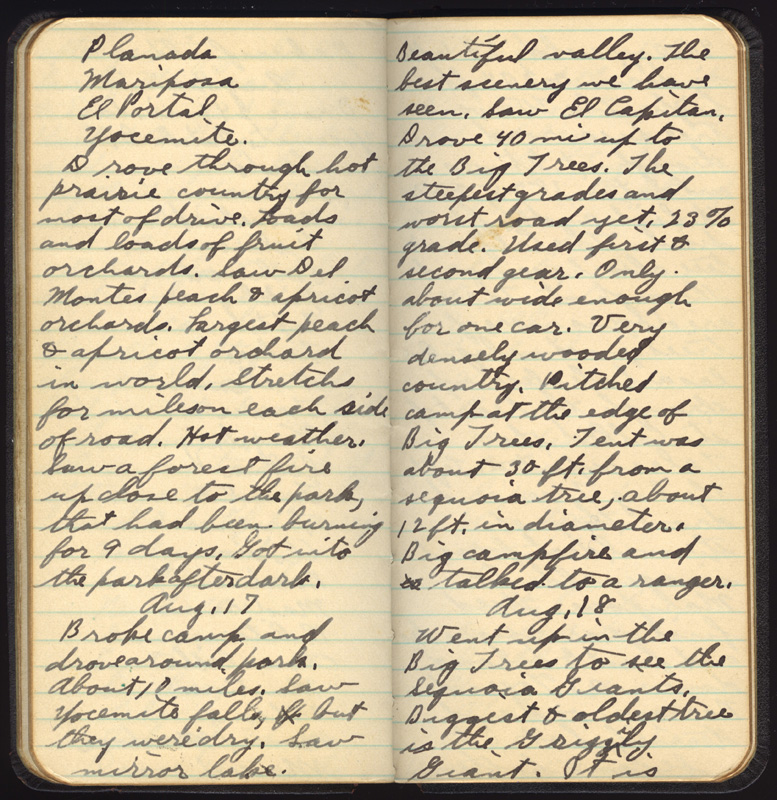 Planada
Mariposa
El Portal
Yocemite.
Drove through hot
prairie country for
most of drive. Loads
and loads of fruit
orchards. Saw Del
Montes peach & apricot
orchards. Largest peach
& apricot orchard
in world. Stretchs
for miles on each side
of road. Hot weather.
Saw a forest fire
up close to the park,
that had been burning
for 9 days. Got into
the park after dark.
Aug. 17
Broke camp and
drove around park.
About 10 miles. Saw
Yocemite falls, but
they were dry. Saw
mirror lake.
Beautiful valley. The
best scenery we have
seen. Saw El Capitan.
Drove 40 mi up to
the Big Trees. The
steepest grades and
worst road yet. 23%
grade. Used first &
second gear. Only
about wide enough
for one car. Very
densely wooded
country. Pitched
camp at the edge of
Big Trees. Tent was
about 30 ft. from a
sequoia tree, about
12 ft. in diameter.
Big campfire and
talked to a ranger.
Aug. 18
Went up in the
Big Trees to see the
Sequoia Giants.
Biggest & oldest tree
is the Grizzly
Giant. It is